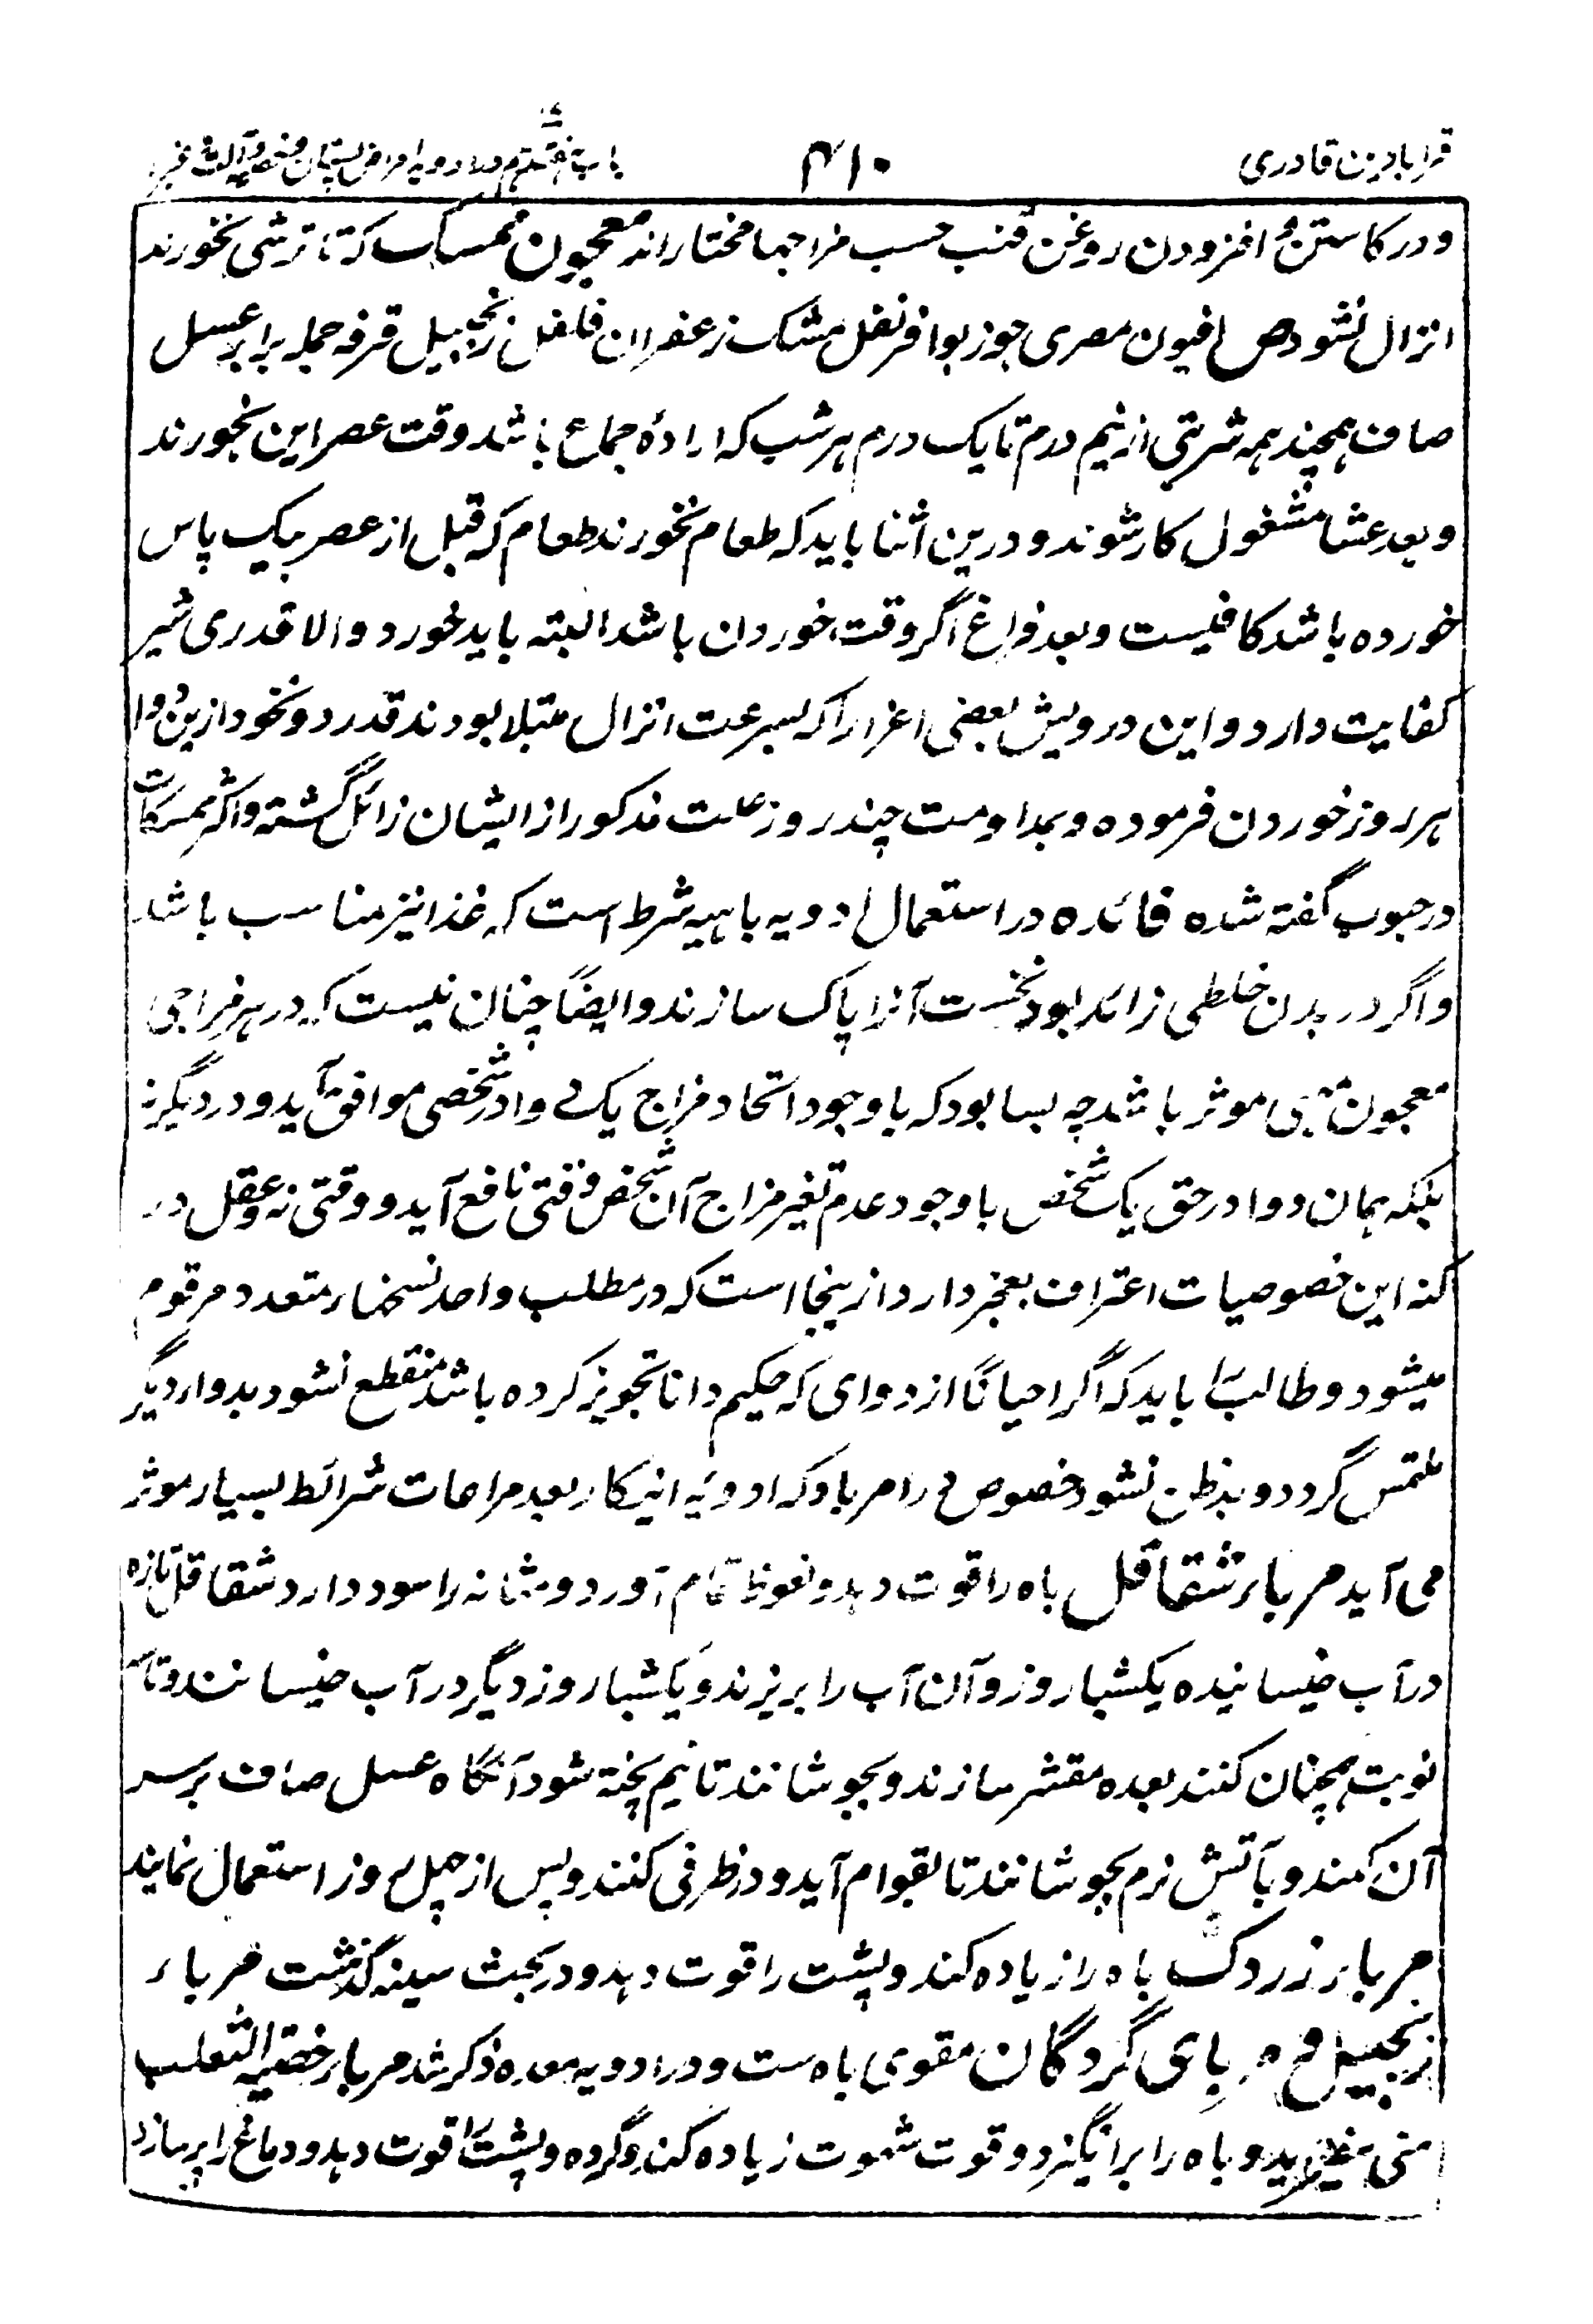 قرابادین قادری
۴۱۰
باب هفتم در ادویه امراض پستان و
و در کاستن و افزودن روغن قنب حسب مزاجها مختار اند معجون ممسک که تا ترشی نخورند
انزال نشود ص افیون مصری جوزبوا قرنفل مشک زعفران فلفل زنجبیل قرفه جمله برابر عسل
صاف همچند همه شربتی از نیم درم تا یک درم هر شب که ارادهٔ جماع باشد وقت عصر این بخورند
و بعد عشا مشغول کار شوند و درین اثنا باید که طعام نخورند طعام که قبل از عصر بیک پاس
خورده باشد کافیست و بعد فراغ اگر وقت خوردن باشد البته باید خورد و الا قدری شیر
کفایت دارد و این درویش بعضی اعزا را که بسرعت انزال مبتلا بودند قدر دو نخود ازین دوا
هر روز خوردن فرموده و بمداومت چند روز علت مذکور از ایشان زائل گشته و اکثر ممسکات
در حبوب گفته شده فائده در استعمال ادویه باهیه شرط است که غذا نیز مناسب باشد
و اگر در بدن خلطی زائد بود نخست آنرا پاک سازند و ایضاً چنان نیست که در هر مزاجی
معجون موثر باشد چه بسا بود که باوجود اتحاد مزاج یک دوا در شخصی موافق آید و در دیگر نه
بلکه همان دوا در حق یک شخص باوجود عدم تغیر مزاج آن شخص وقتی نافع آید و وقتی نه و عقل در
کنه این خصوصیات اعتراف بعجز دارد ازینجا است که در مطلب واحد نسخهاء متعدد مرقوم
میشود و طالب را باید که اگر احیاناً از دوای که حکیم دانا تجویز کرده باشد منتفع نشود بدواء دیگر
ملتمس گردد و بدظن نشود خصوص در امر باه که ادویهٔ اینکار بعد مراعات شرائط بسیار موثر
می آید مرباء شقاقل باه را قوت دهد و نعوظ تمام آورد و مثانه را سود دارد شقاقل تازه
در آب خیسانیده یکشبا روز و آن آب را بریزند و یکشبا روز دیگر در آب خیسانند و تا
نوبت همچنان کنند بعده مقشر سازند و بجوشانند تا نیم پخته شود آنگاه عسل صاف بر سر
آن کنند و بآتش نرم بجوشانند تا بقوام آید و در ظرفی کنند و پس از چهل روز استعمال نمایند
مرباء زردک باه را زیاده کند و پشت را قوت دهد و در بحث سینه گذشت مرباء
زنجبیل و مربای گردگان مقوی باه ست و در ادویه معده ذکر شد مرباء خصیة الثعلب
منی بیفزاید و باه را برانگیزد و قوت شهوت زیاده کند و گرده و پشت را قوت دهد و دماغ را پر سازد